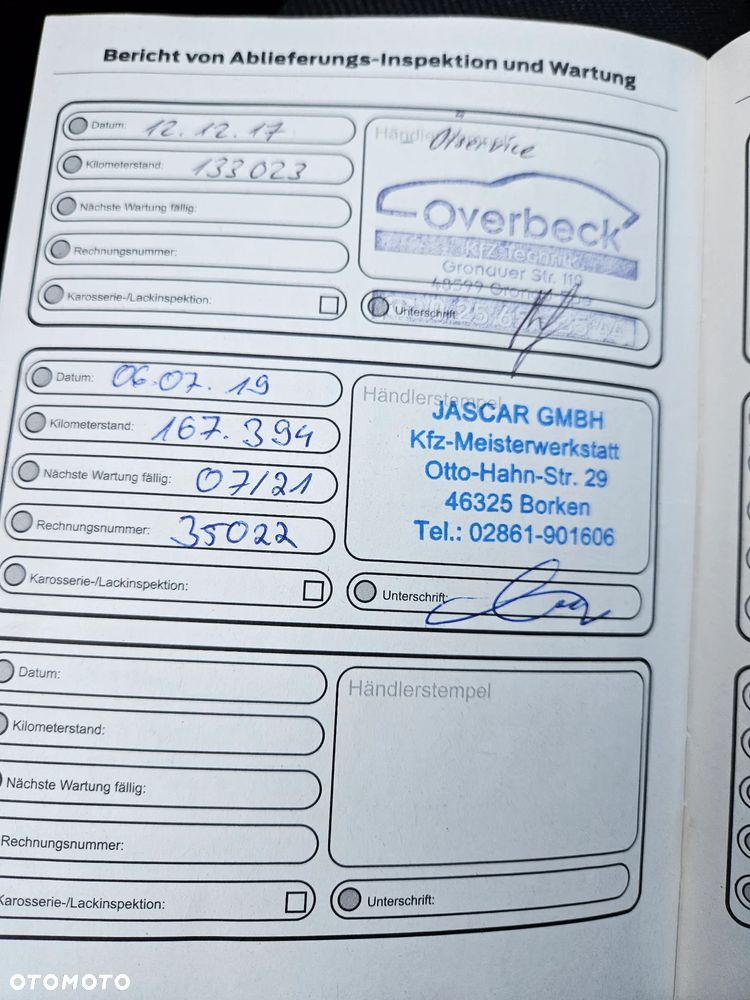 Bericht von Ablieferungs-Inspektion und Wartung
Datum: 12.12.17
Kilometerstand: 133023
Nächste Wartung fällig:
Rechnungsnummer:
Karosserie-/Lackinspektion:
Ölservice
Overbeck
Kfz-Technik
Gronauer Str. 119
48599 Gronau-Epe
Unterschrift:
Datum: 06.07.19
Kilometerstand: 167.394
Nächste Wartung fällig: 07/21
Rechnungsnummer: 35022
Karosserie-/Lackinspektion:
Händlerstempel
JASCAR GMBH
Kfz-Meisterwerkstatt
Otto-Hahn-Str. 29
46325 Borken
Tel.: 02861-901606
Unterschrift:
Datum:
Kilometerstand:
Nächste Wartung fällig:
Rechnungsnummer:
Karosserie-/Lackinspektion:
Händlerstempel
Unterschrift:
OTOMOTO